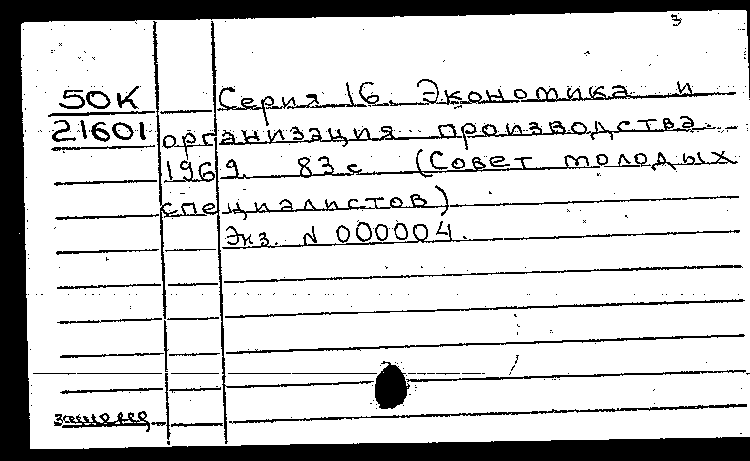 3
50К Серия 16. Экономика и
21601 организация производства.
1969. 83 с (Совет молодых
специалистов)
Экз. N 000004.